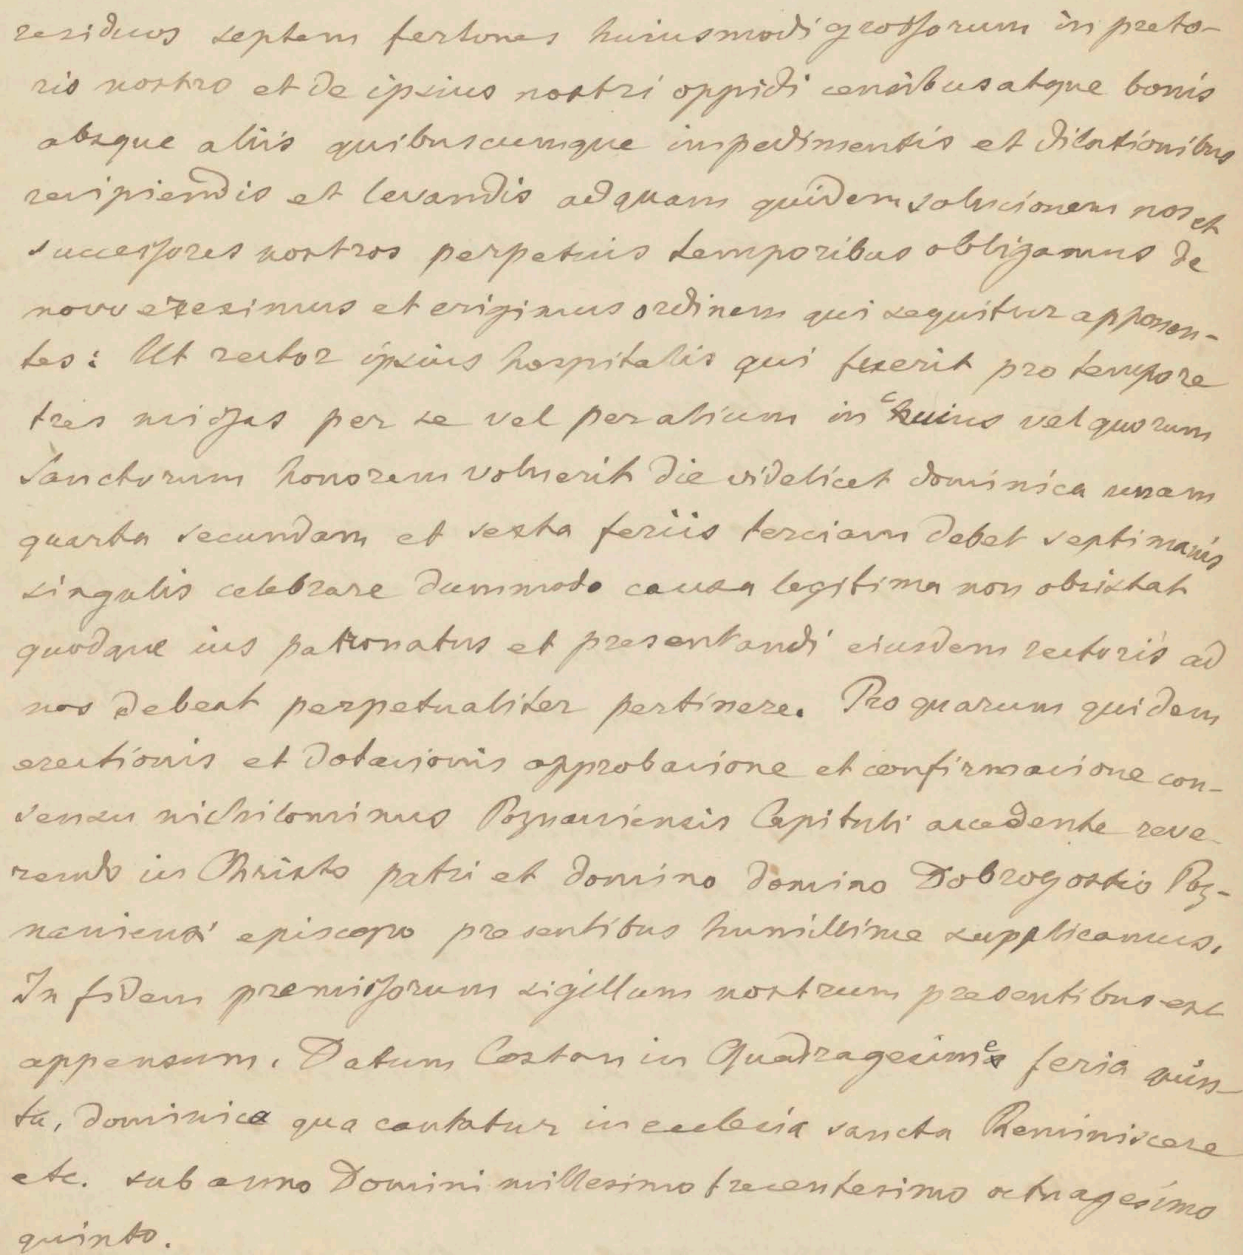 residuos septem fertones huiusmodi grossorum in preto-
rio nostro et de ipsius nostri oppidi censibus atque bonis
absque aliis quibuscumque impedimentis et dilationibus
recipiendis et levandis ad quam quidem solucionem nos et
successores nostros perpetuis temporibus obligamus de
novo ereximus et erigimus ordinem qui sequitur apponen-
tes: Ut rector ipsius hospitalis qui fuerit pro tempore
tres missas per se vel per alium in cuius vel quorum
Sanctorum honorem voluerit die videlicet dominica unam
quarta secundam et sexta feriis terciam debet septimanis
singulis celebrare dummodo causa legitima non obsistat
quodque ius patronatus et presentandi eiusdem rectoris ad
nos debeat perpetualiter pertinere. Pro quarum quidem
erectionis et dotacionis approbacione et confirmacione con-
sensu nichilominus Poznaniensis Capituli accedente reve-
rendo in Christo patri et domino domino Dobrogostio Poz-
naniensi episcopo presentibus humillime supplicamus.
In fidem premissorum sigillum nostrum presentibus est
appensum. Datum Costan in Quadragesime feria quin-
ta, dominica qua cantatur in ecclesia sancta Reminiscere
etc. sub anno Domini millesimo trecentesimo octuagesimo
quinto.